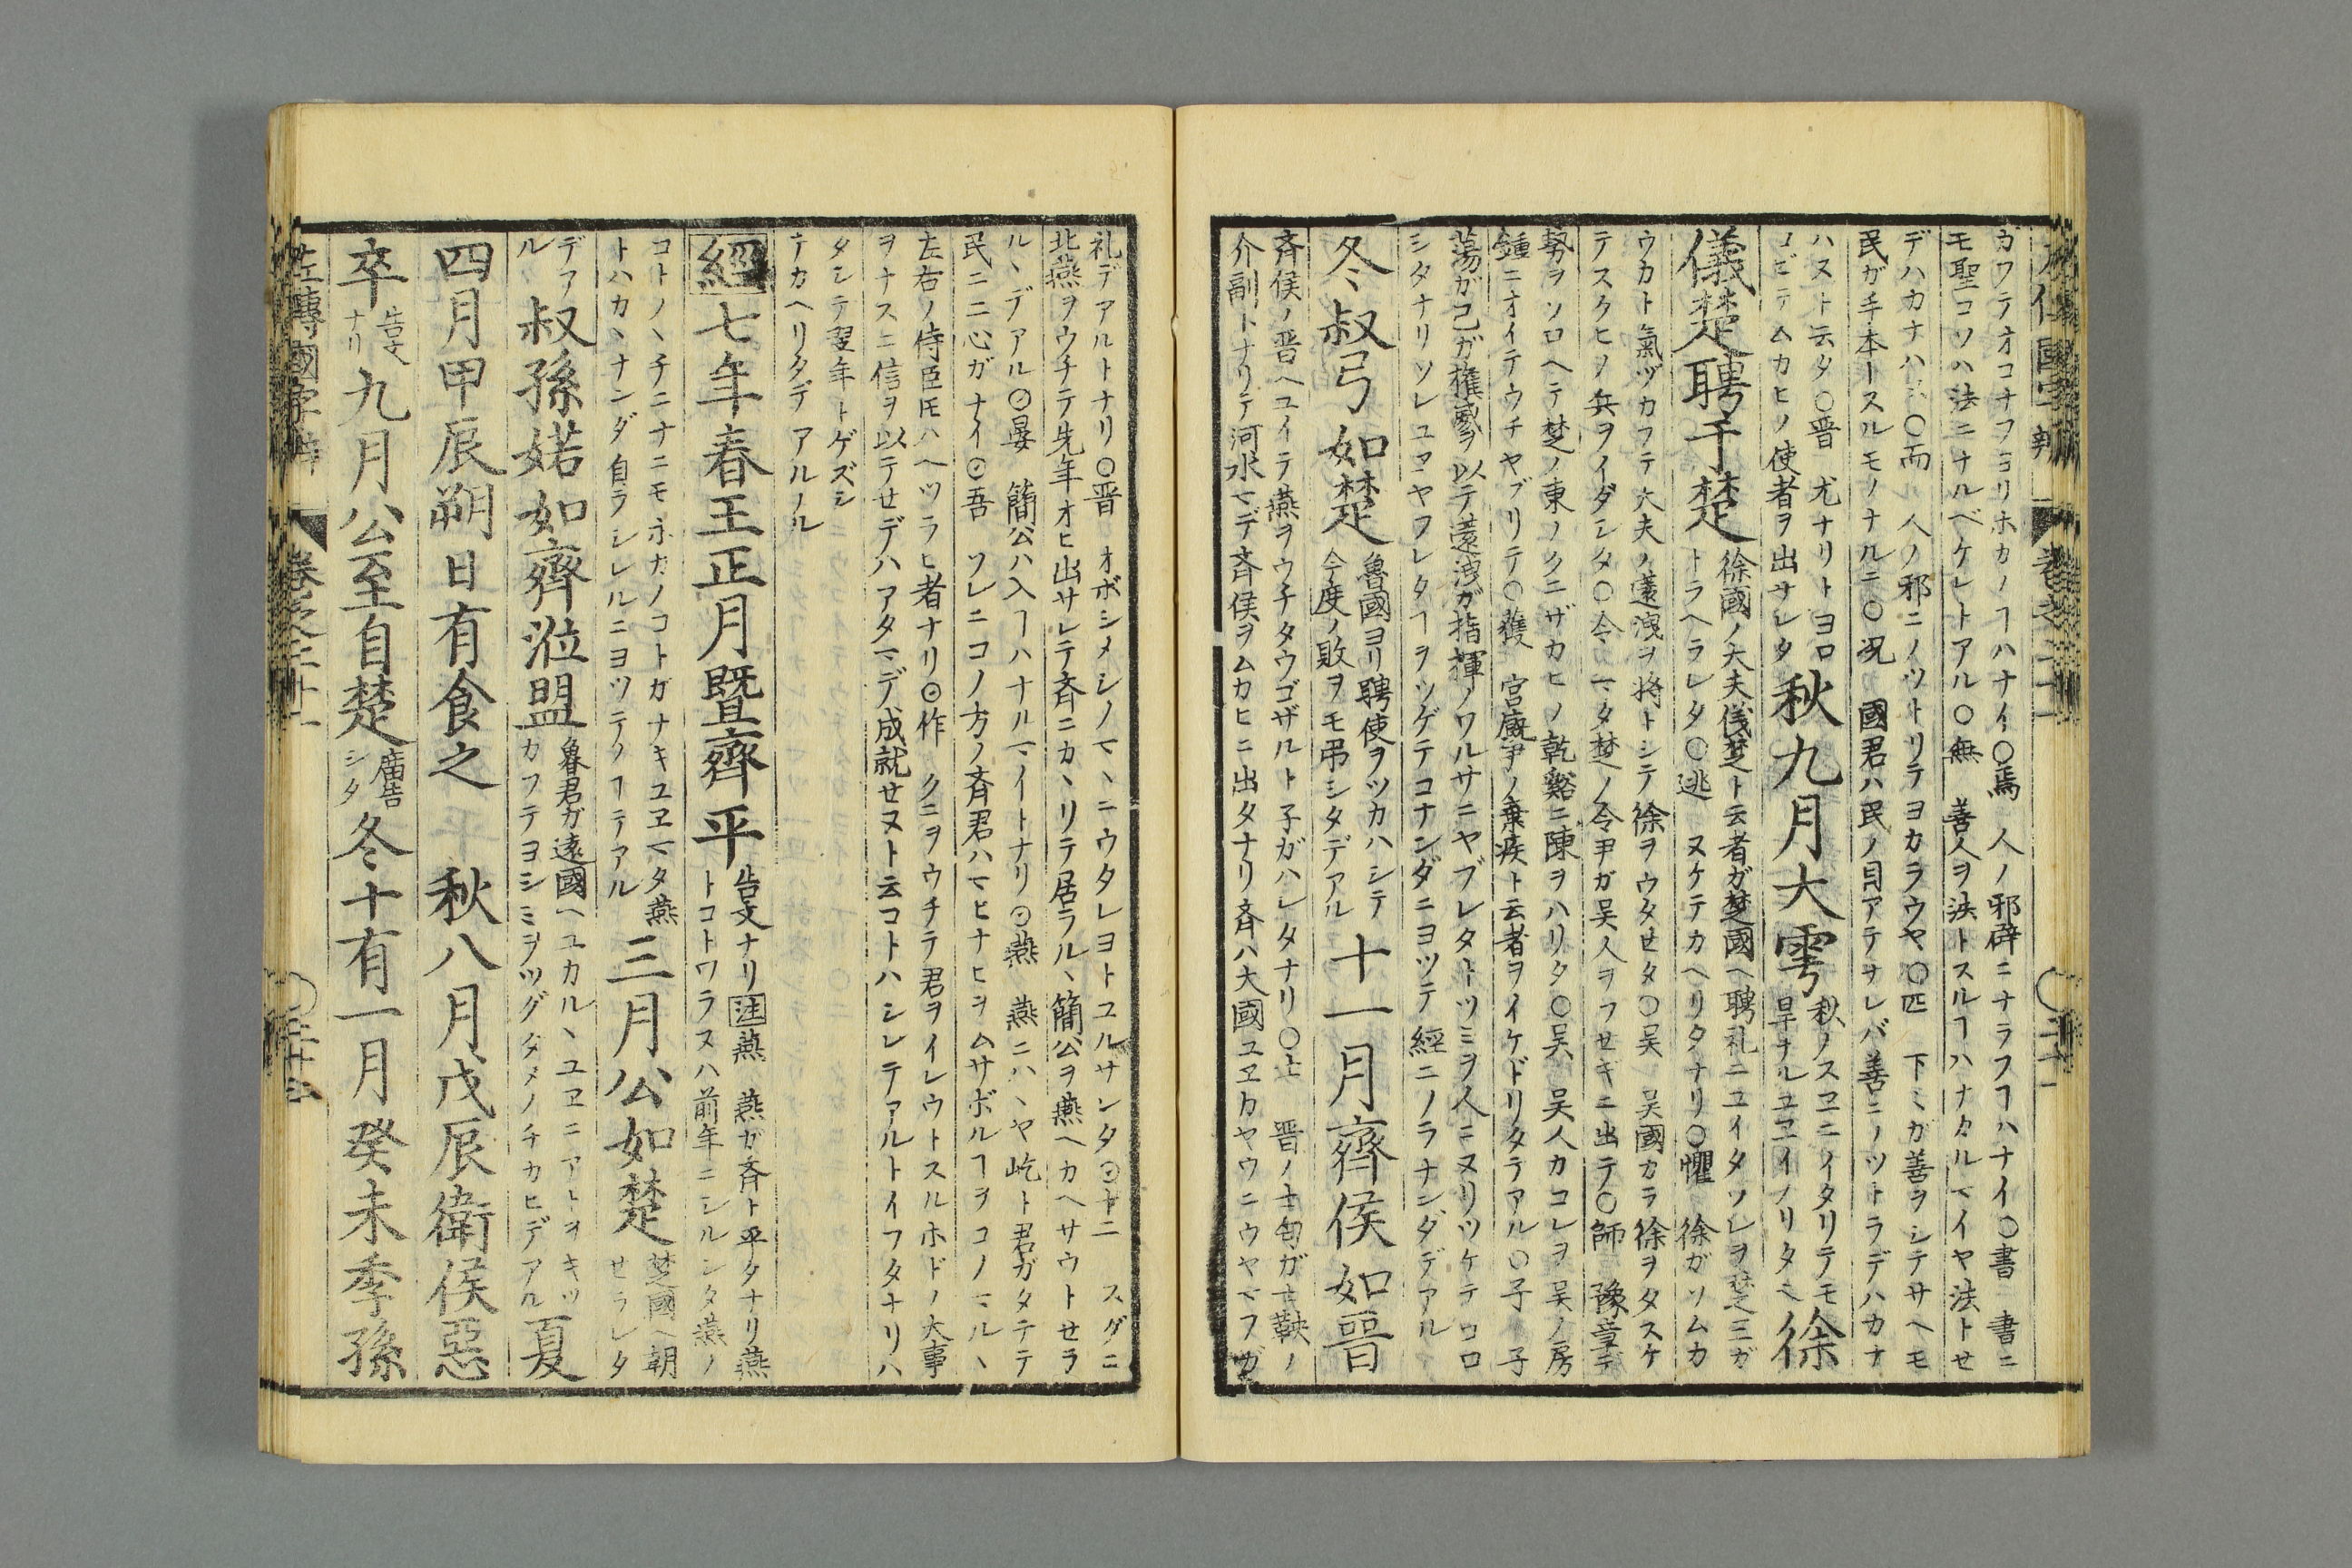 カワテオコナフヨリホカノヿハナイ〇焉　人ノ邪辟ニナラフヿハナイ〇書　書ニ
モ聖コソハ法ニナルベケレトアル〇無　善人ヲ法トスルヿハナクルマイヤ法トセ
デハカナハ〇而　人ノ邪ニノツトリテヨカラウヤ〇匹　下ミガ善ヲシテサヘモ
民ガ手本ースルモノナルニ〇况　國君ハ民ノ目アテナレバ善ニノツトラデハカナ
ハヌト云タ〇晋　尤ナリトヨロ
コビテムカヒノ使者ヲ出サレタ
秋九月大雩
秋ノスヱニイタリテモ
旱ナルユヱイノリタ
徐
儀楚聘于楚
徐國ノ大夫儀楚ト云者ガ楚國ヘ聘礼ニユイタソレヲ楚王ガ
トラヘラレタ〇逃　ヌケテカヘリタナリ〇懼　徐ガソムカ
ウカト氣ヅカフテ大夫ノ薳洩ヲ将トシテ徐ヲウタセタ〇吴　吴國カラ徐ヲタスケ
テスクヒノ兵ヲイダシタ〇令　マタ楚ノ令尹ガ吴人ヲフセキニ出テ〇師　豫章デ
勢ヲソロヘテ楚ノ東ノクニザカヒノ乾谿ニ陳ヲハリタ〇吴　吴人カコレヲ吴ノ房
鍾ニオイテウチヤブリテ〇獲　宮廐尹ノ棄疾ト云者ヲイケドリタテアル〇子　子
蕩ガ己ガ権威ヲ以テ薳洩ガ指揮ノワルサニヤブレタトツミヲ人ニヌリツケテコロ
シタナリソレユヱヤフレタヿヲツゲテコナンダニヨツテ經ニノラナンダデアル
冬叔弓如楚
魯國ヨリ聘使ヲツカハシテ
今度ノ敗ヲモ弔シタデアル
十一月齊侯如晋
斉侯ノ晋ヘユイテ燕ヲウチタウゴザルト子ガハレタナリ〇士　晋ノ士匄ガ士鞅ノ
介副トナリテ河水マデ斉侯ヲムカヒニ出タナリ斉ハ大國ユヱカヤウニウヤマフガ
礼デアルトナリ〇晋　オボシメシノマヽニウタレヨトユルサンタ〇十二　スグニ
北燕ヲウチテ先年オヒ出サレテ斉ニカヽリテ居ラルヽ簡公ヲ燕ヘカヘサウトセラ
ルヽデアル〇晏　簡公ハ入ヿハナルマイトナリ〇燕　燕ニハハヤ屹ト君ガタテテ
民ニ二心ガナイ〇吾　ソレニコノ方ノ斉君ハマヒナヒヲムサボルヿヲコノマルヽ
左右ノ侍臣𪜈ハヘツラヒ者ナリ〇作　クニヲウチテ君ヲイレウトスルホドノ大事
ヲナスニ信ヲ以テセデハアタマデ成就セヌト云コトハシレテアルトイフタナリハ
タシテ翌年トゲズシ
テカヘリタデアルノル
經七年春王正月暨齊平
告文ナリ注燕　燕ガ斉ト平タナリ燕
トコトワラヌハ前年ニシルシタ燕ノ
コトノヽチニナニモホカノコトガナキユヱマタ燕
トハカヽナンダ自ラシレルニヨツテノヿテアル
三月公如楚
楚國ヘ朝
セラレタ
デア
ル
叔孫婼如齊涖盟
魯君ガ遠國ヘユカルヽユヱニアトヲキツ
カフテヨシミヲツグタメノチカヒデアル
夏
四月甲辰朔日有食之　秋八月戊辰衛侯惡
卒
告文
ナリ
九月公至自楚
廟告
シタ
冬十有一月癸未季孫
左傳國字辯　卷之二十一